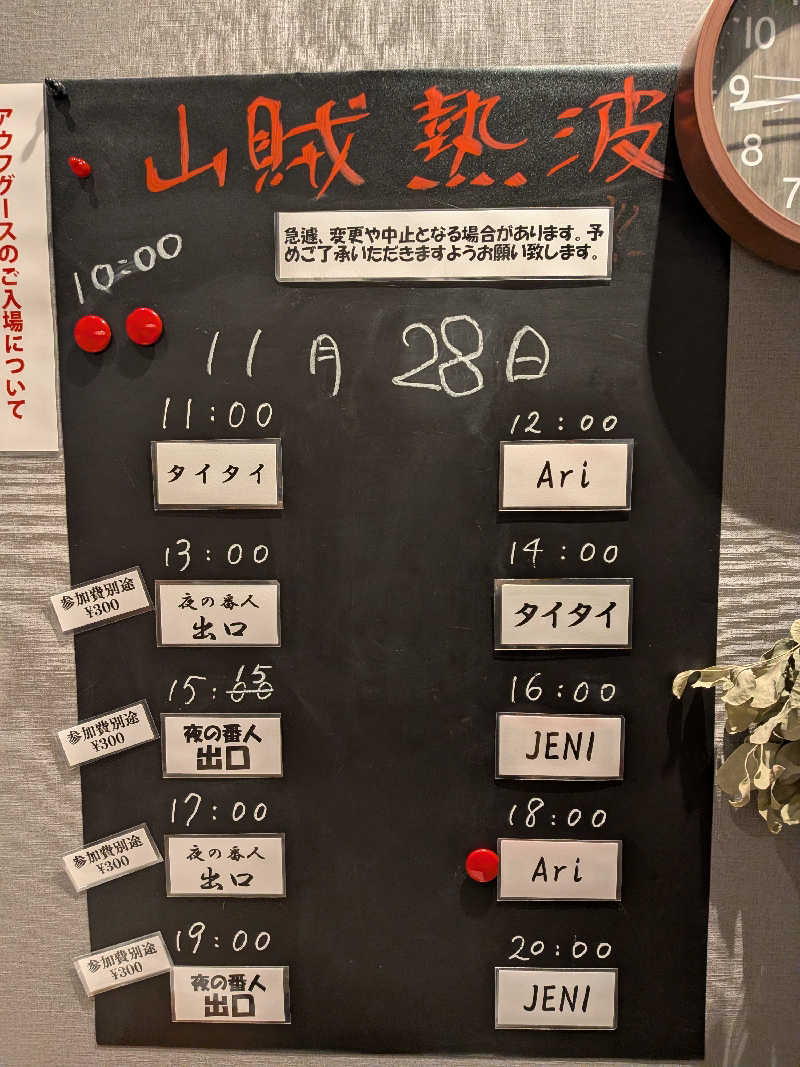 アウフグースのご入場について
山賊熱波
急遽、変更や中止となる場合があります。予
めご了承いただきますようお願い致します。
10:00
11月28日
11:00
タイタイ
12:00
Ari
13:00
参加費別途
¥300
夜の番人
出口
14:00
タイタイ
15:00
15
参加費別途
¥300
夜の番人
出口
16:00
JENI
17:00
参加費別途
¥300
夜の番人
出口
18:00
Ari
19:00
参加費別途
¥300
夜の番人
出口
20:00
JENI
10
9
8
7